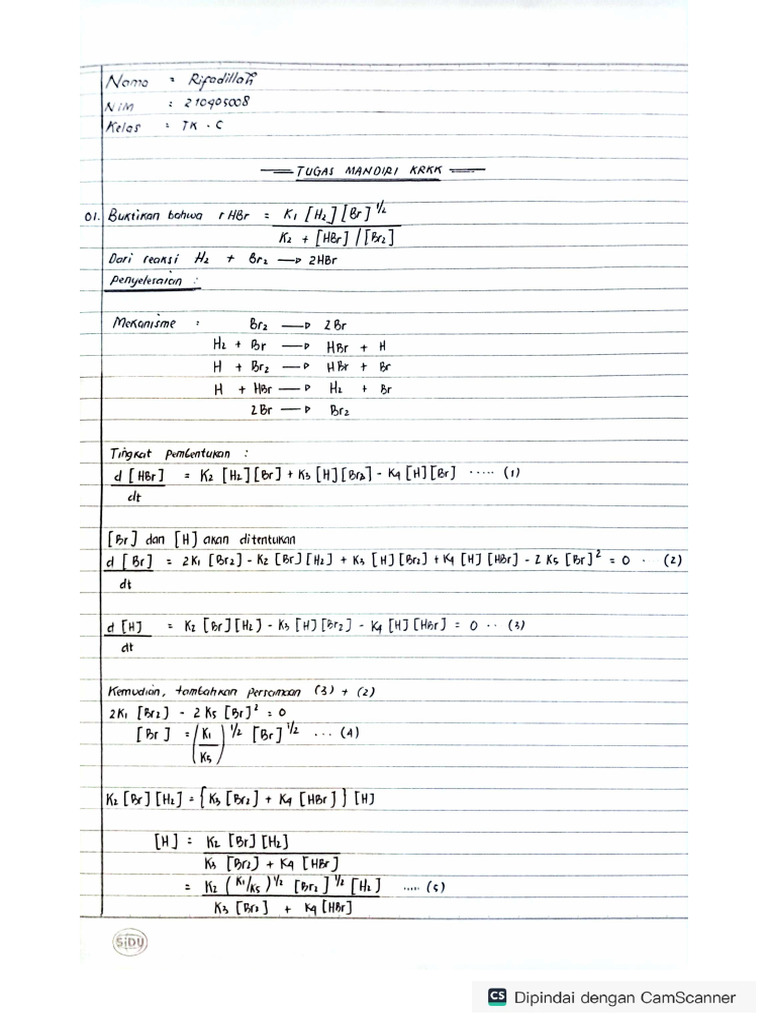 Nama = Rifadillah
NIM : 210905008
Kelas : TK . C
TUGAS MANDIRI KRKK
01. Buktikan bahwa rHBr = K1 [H2] [Br]^1/2 / K2 + [HBr] / [Br2]
Dari reaksi H2 + Br2 → 2HBr
Penyelesaian :
Mekanisme : Br2 → 2Br
H2 + Br → HBr + H
H + Br2 → HBr + Br
H + HBr → H2 + Br
2Br → Br2
Tingkat pembentukan :
d [HBr] / dt = K2 [H2][Br] + K3 [H][Br2] - K4 [H][Br] ..... (1)
[Br] dan [H] akan ditentukan
d [Br] / dt = 2K1 [Br2] - K2 [Br][H2] + K3 [H][Br2] + K4 [H][HBr] - 2 K5 [Br]^2 = 0 . (2)
d [H] / dt = K2 [Br][H2] - K3 [H][Br2] - K4 [H][HBr] = 0 .. (3)
Kemudian, tambahkan persamaan (3) + (2)
2K1 [Br2] - 2 K5 [Br]^2 = 0
[Br] = (K1 / K5)^1/2 [Br]^1/2 ... (4)
K2 [Br][H2] = {K3 [Br2] + K4 [HBr]} [H]
[H] = K2 [Br][H2] / K3 [Br2] + K4 [HBr]
= K2 (K1/K5)^1/2 [Br2]^1/2 [H2] / K3 [Br2] + K4 [HBr] ..... (5)
SiDU
CS Dipindai dengan CamScanner